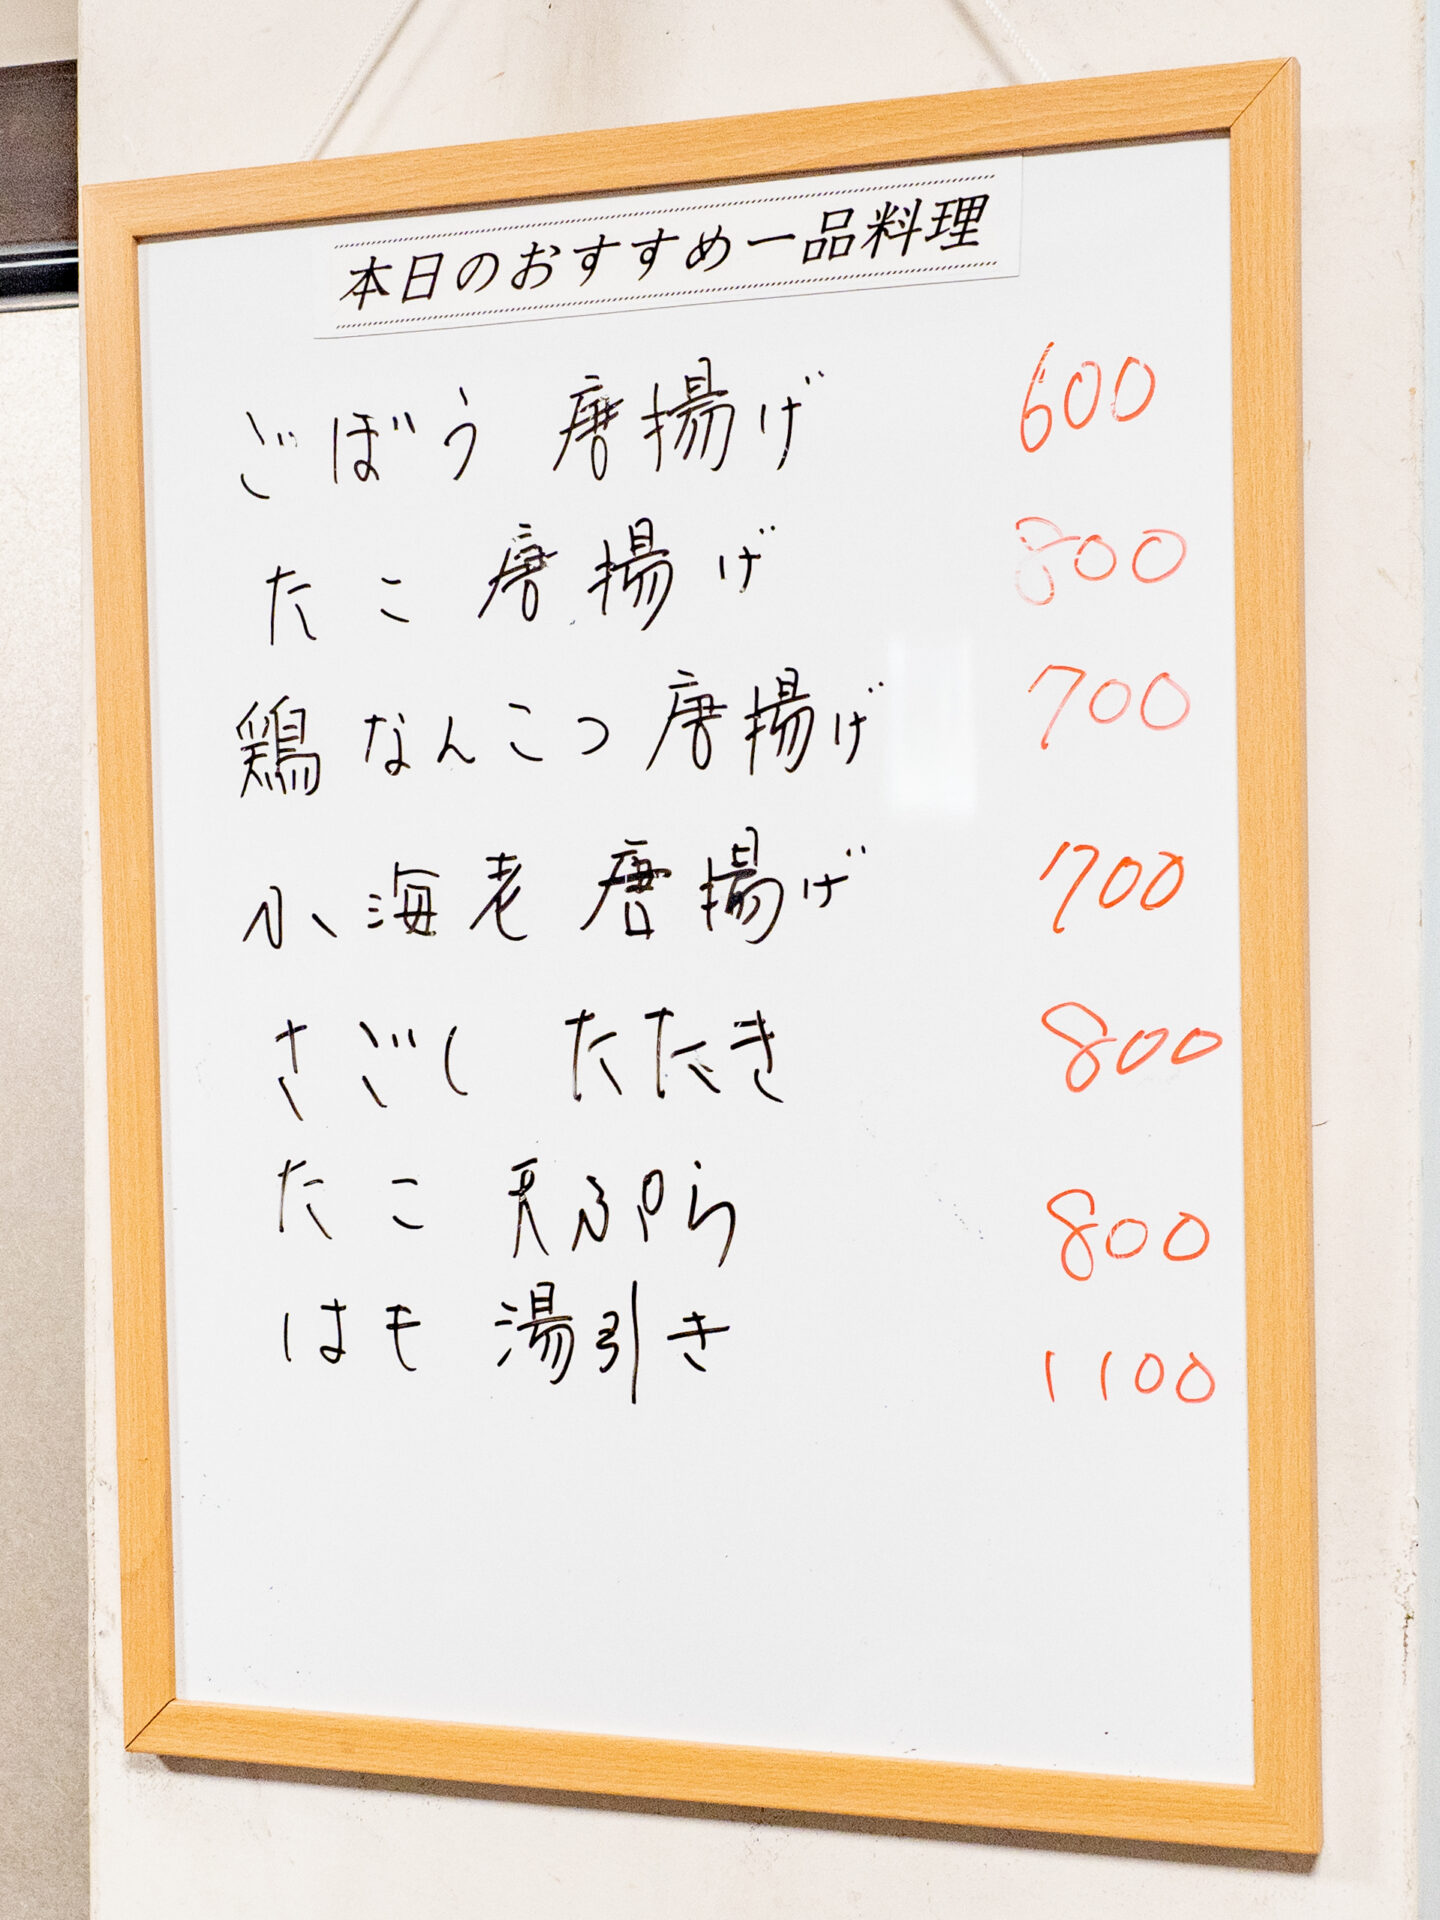 本日のおすすめ一品料理
ごぼう 唐揚げ 600
たこ 唐揚げ 800
鶏なんこつ唐揚げ 700
小海老唐揚げ 700
さごし たたき 800
たこ 天ぷら 800
はも 湯引き 1100